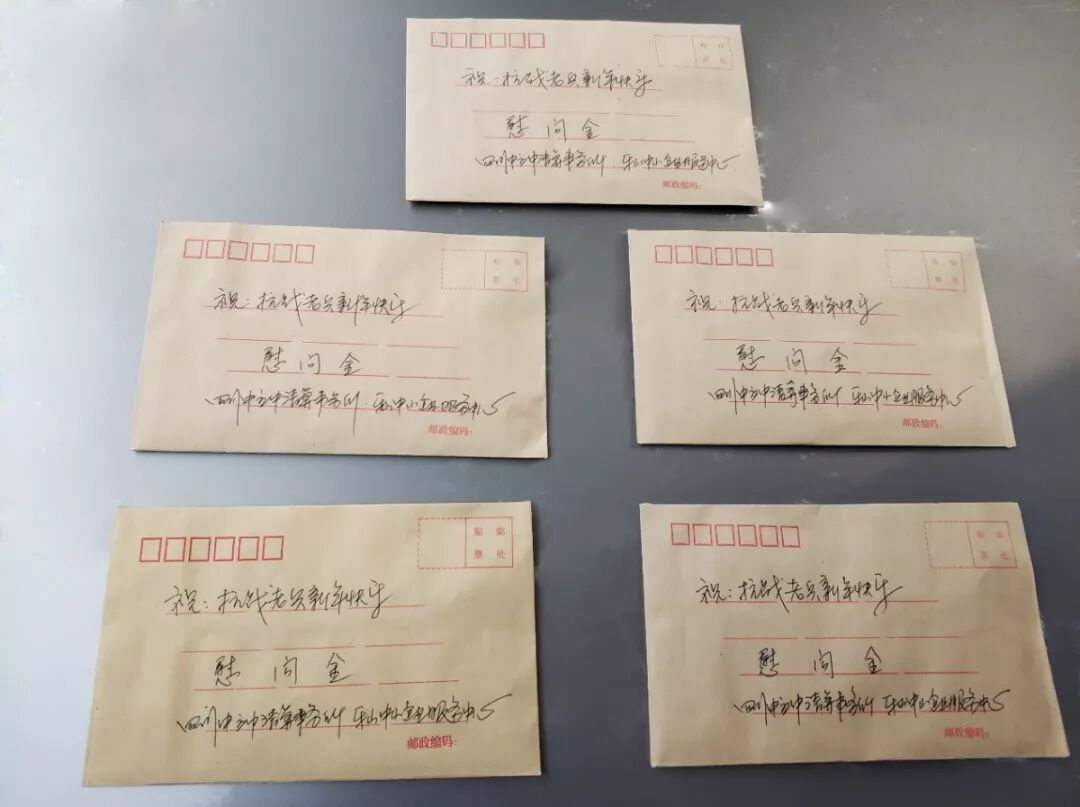 贴邮
票处
祝:抗战老兵新年快乐
慰问金
四川中立中清算事务所 乐山中小企业服务中心
邮政编码:
贴邮
票处
祝:抗战老兵新年快乐
慰问金
四川中立中清算事务所 乐山中小企业服务中心
邮政编码:
贴邮
票处
祝:抗战老兵新年快乐
慰问金
四川中立中清算事务所 乐山中小企业服务中心
邮政编码:
贴邮
票处
祝:抗战老兵新年快乐
慰问金
四川中立中清算事务所 乐山中小企业服务中心
邮政编码:
贴邮
票处
祝:抗战老兵新年快乐
慰问金
四川中立中清算事务所 乐山中小企业服务中心
邮政编码: